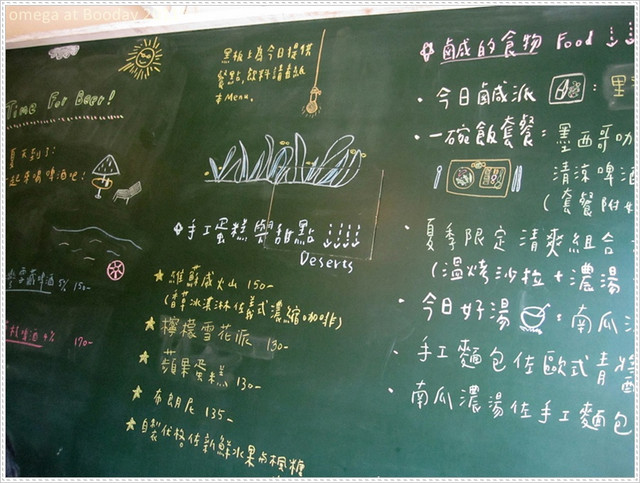 omega at Booday
Time For Beer!
夏天到了!
起來喝啤酒吧!
5% 150-
啤酒 4% 170-
黑板上為今日提供
餐點,飲料請看紙
本Menu。
手工蛋糕與甜點
Deserts
維蘇威火山 150-
(香草冰淇淋佐義式濃縮咖啡)
檸檬雪花派 130-
蘋果蛋糕 130-
布朗尼 135-
自製优格佐新鮮水果与楓糖
鹹的食物 Food
今日鹹派
一碗飯套餐:墨西哥
清涼啤酒
(套餐附
夏季限定清爽組合
(溫烤沙拉+濃湯
今日好湯:南瓜
手工麵包佐歐式青醬
南瓜濃湯佐手工麵包